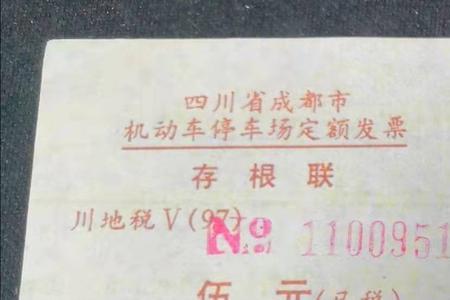 四川省成都市
机动车停车场定额发票
存根联
川地税V(97)
№ 1100951
伍 元(已税)